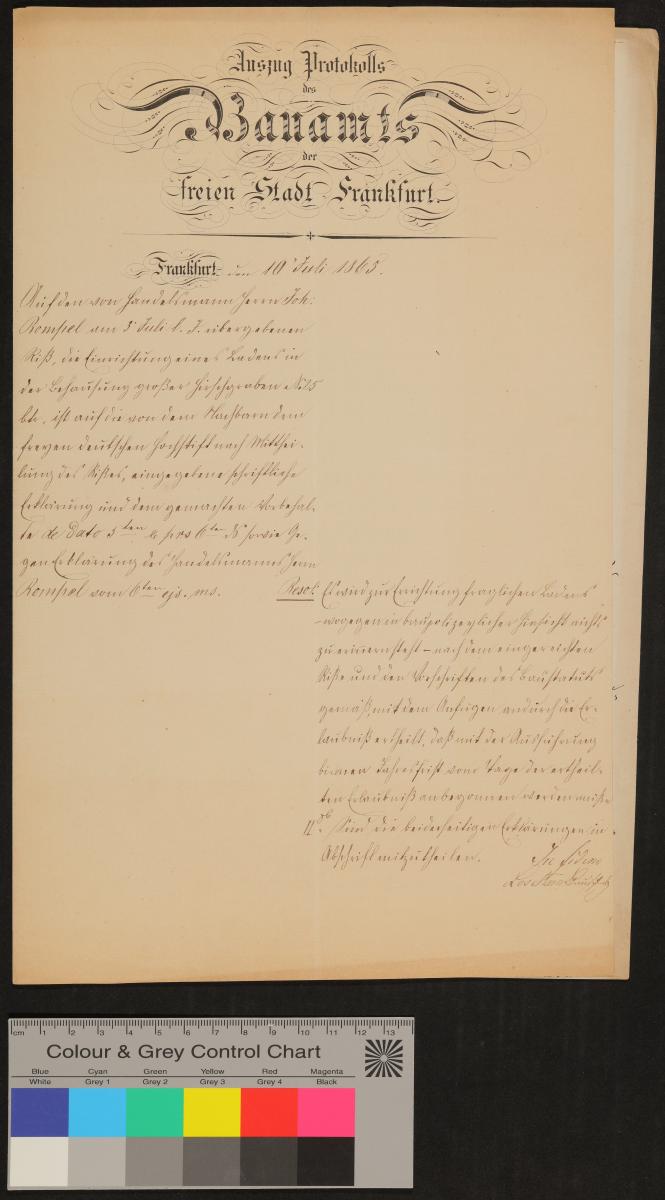 Auszug Protokolls
des
Bauamts
der
freien Stadt Frankfurt.
Frankfurt den 10 Juli 1865.
Auf den von Handelsmann Herrn Joh:
Rompel am 3 Juli l. J. übergebenen
Riß, die Einrichtung eines Ladens in
der Behausung großer Hirschgraben No 25
btr. ist auf die von dem Nachbarn dem
freyen deutschen Hochstift nach Mitthei-
lung des Rißes, eingegebene schriftliche
Erklärung und dem gemachten Vorbehal-
te de Dato 5ten & prs 6ten ds sowie Ge-
gen Erklärung des Handelsmanns Herrn
Rompel vom 6ten ejs. ms.
Resol: Es wird zur Errichtung fraglichen Ladens
- wogegen in baupolizeylicher Hinsicht nichts
zu erinnern steht - nach dem eingereichten
Riße und den Vorschriften des Baustatuts
gemäß, mit dem Anfügen andurch die Er-
laubniß ertheilt, daß mit der Ausführung
binnen Jahresfrist vom Tage der ertheil-
ten Erlaubniß an begonnen werden müße
II. Sind die beiderseitigen Erklärungen in
Abschrift mitzutheilen.
In fidem
Colour & Grey Control Chart
cm 1 2 3 4 5 6 7 8 9 10 11 12 13
Blue Cyan Green Yellow Red Magenta
White Grey 1 Grey 2 Grey 3 Grey 4 Black